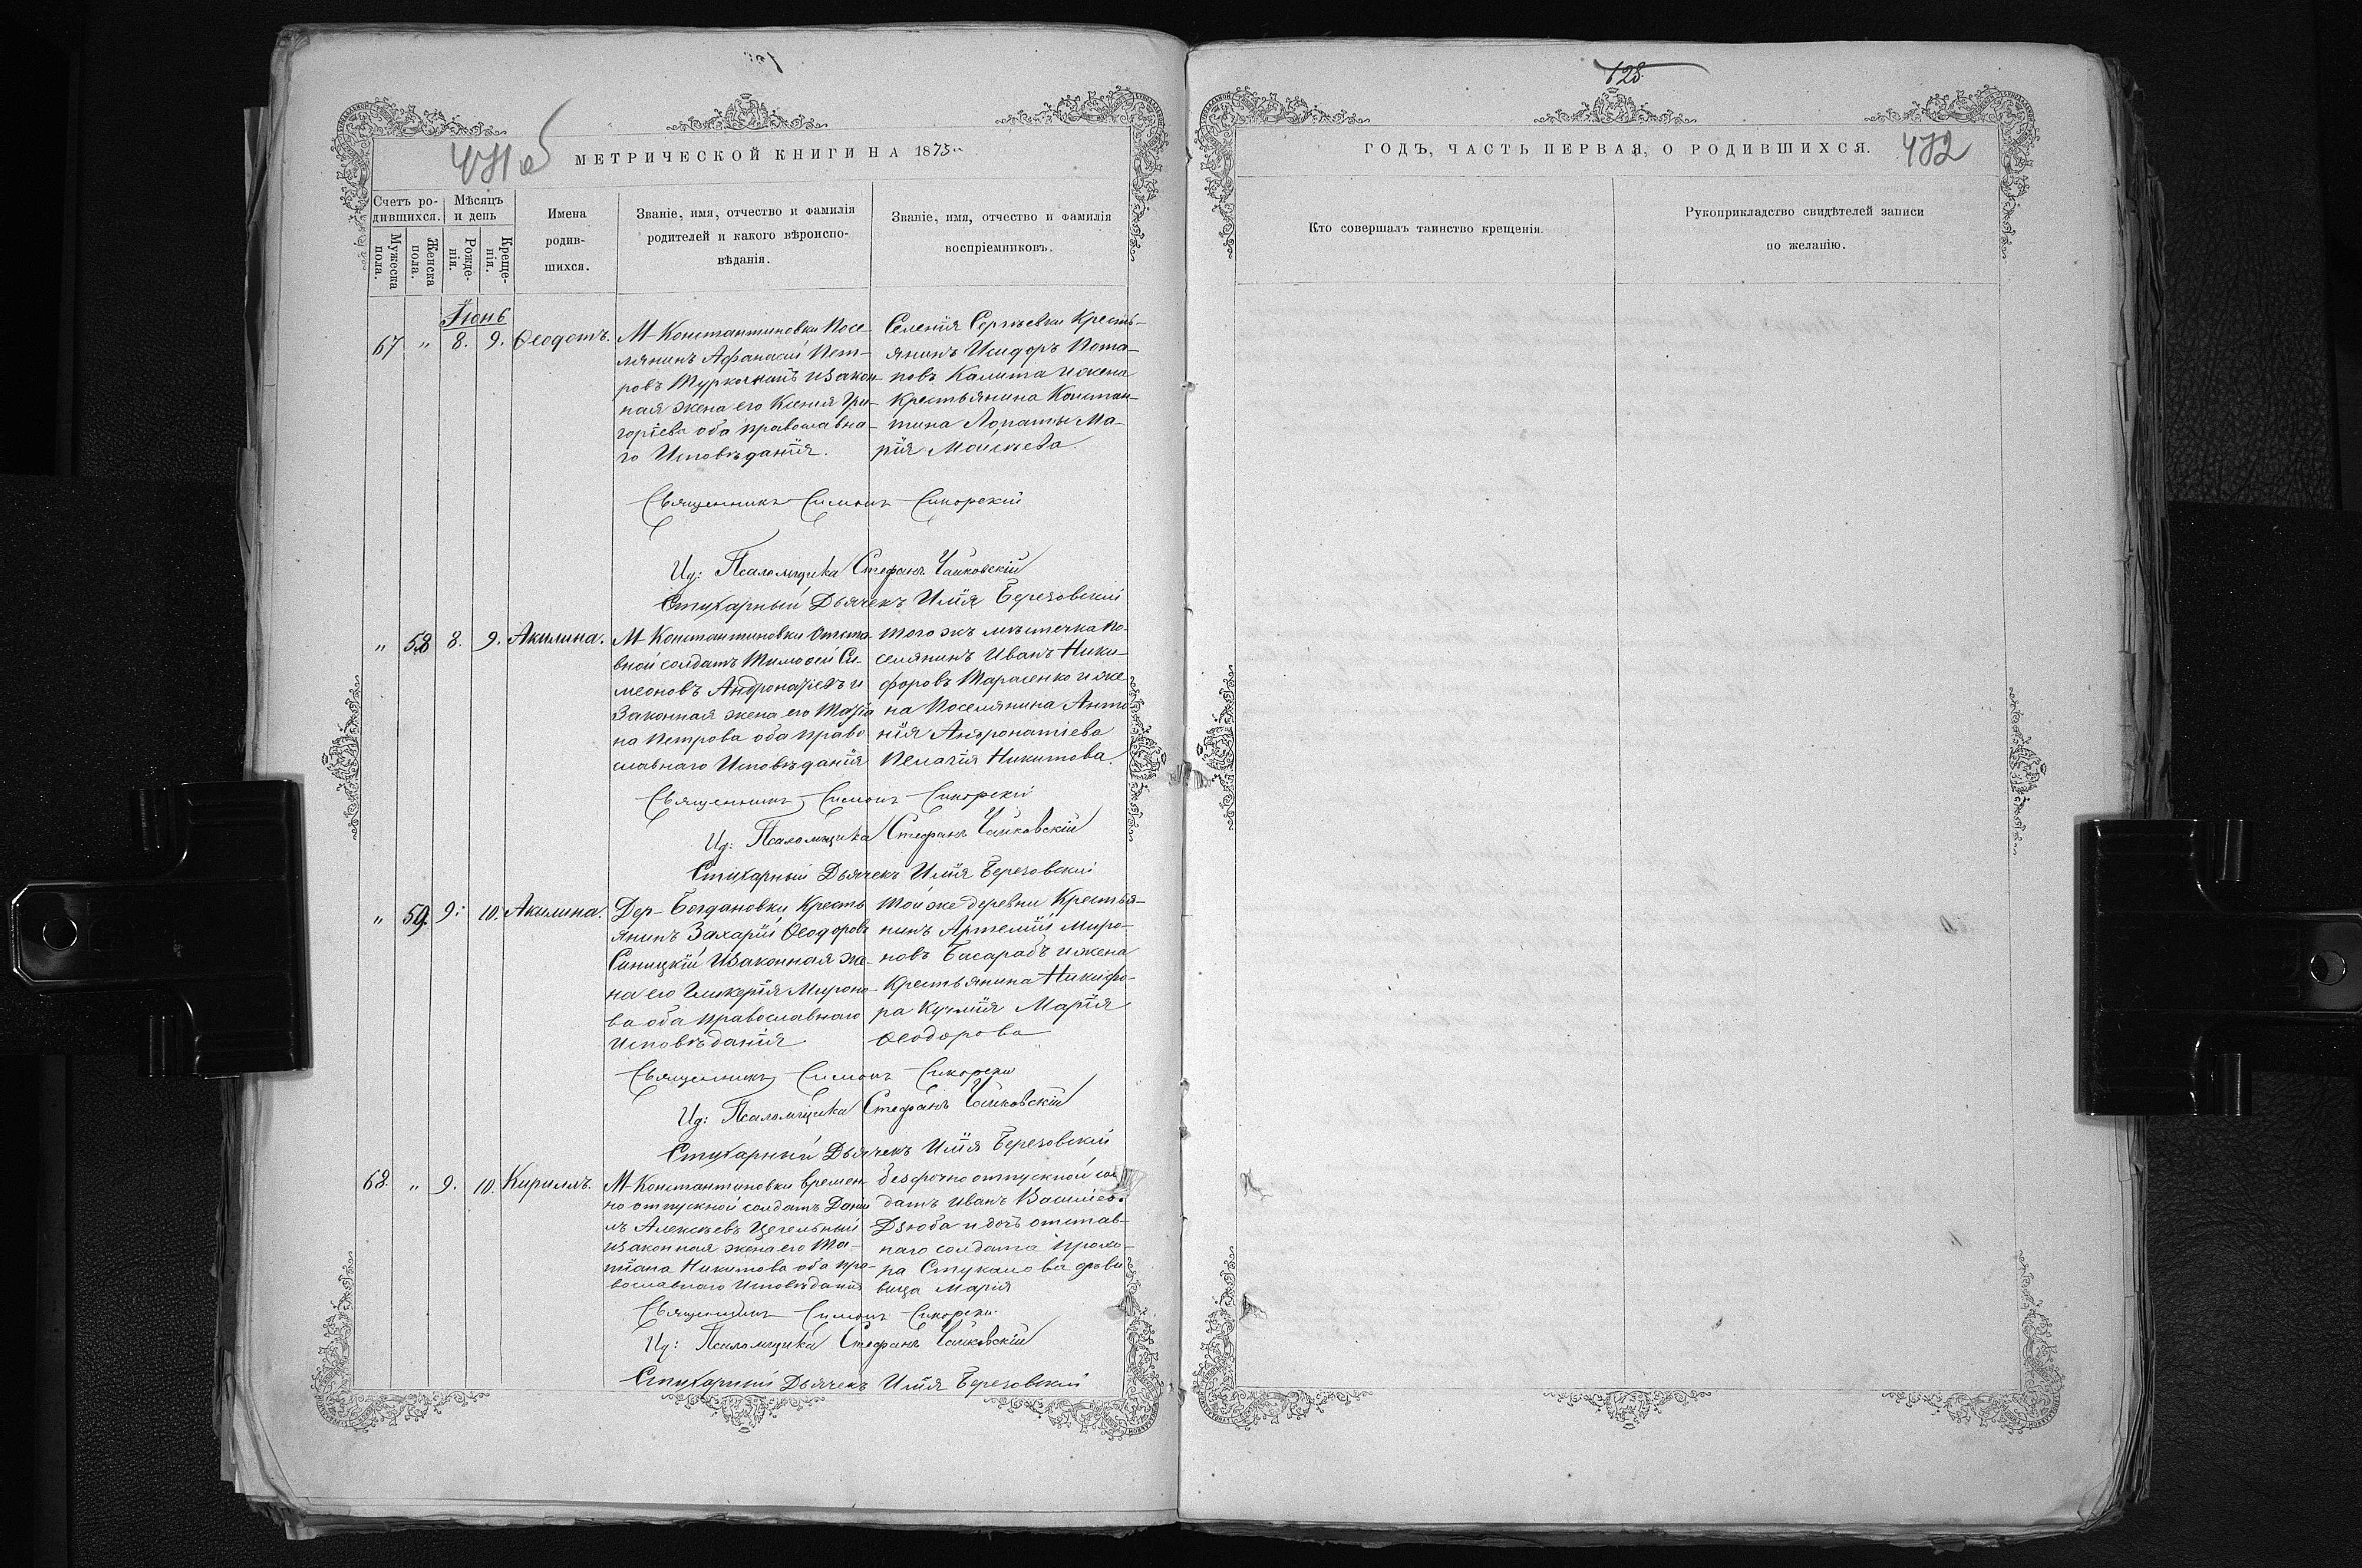 128
471 об
МЕТРИЧЕСКОЙ КНИГИ НА 1875
ГОДЪ, ЧАСТЬ ПЕРВАЯ, О РОДИВШИХСЯ.
472
Счетъ ро-
дившихся.
Мѣсяцъ
и день
Мужеска
пола.
Женска
пола.
Рожде-
нія.
Креще-
нія.
Имена
родив-
шихся.
Званіе, имя, отчество и фамилія
родителей и какого вѣроиспо-
вѣданія.
Званіе, имя, отчество и фамилія
воспріемниковъ.
Кто совершалъ таинство крещенія.
Рукоприкладство свидѣтелей записи
по желанію.
Іюнь
67 " 8. 9. Ѳеодотъ.
М Константиновки Посе-
лянинъ Афанасій Пет-
ровъ и закон-
ная жена его Ксенія Гри-
горіева оба православна-
го Исповѣданія.
Селенія Сергѣевки Кресть-
янинъ Исидоръ Пота-
повъ Калита и жена
Крестьянина Констан-
тина Лопаты Ма-
рія Моисѣева
Священникъ Симонъ Сикорскій
Ид: Псаломщика Стефанъ Чайковскій
Стихарный Дьячекъ Илія Березовскій
" 58 8. 9. Акилина.
М Константиновки Отста-
вной солдатъ Тимоѳей Си-
меоновъ и
Законная жена его Татія
на Петрова оба право
славнаго Исповѣданія
того жъ мѣстечка по-
селянинъ Иванъ Ники-
форовъ Тарасенко и же
на Поселянина Анто
нія Андронатіева
Пелагія Никитова.
Священникъ Симонъ Сикорскій
Ид: Псаломщика Стефанъ Чайковскій
Стихарный Дьячекъ Илія Березовскій
" 59. 9. 10. Акилина.
Дер- Богдановки Кресть
янинъ Захарій Ѳеодоровъ
Синицкій и законная же-
на его Гликерія Мироно-
ва оба православнаго
Исповѣданія
Той же деревни Крестья-
нинъ Артемій Миро-
новъ Басарабъ и жена
Крестьянина Никифо-
ра Марія
Ѳеодорова
Священникъ Симонъ Сикорскій
Ид: Псаломщика Стефанъ Чайковскій
Стихарный Дьячекъ Илія Березовскій
68. " 9. 10. Кириллъ.
М Константиновки времен-
но отпускной солдатъ Дании
лъ Алексѣевъ Цегельный
и законная жена его Та-
тіана Никитова оба пра-
вославнаго Исповѣданія
безсрочно отпускной сол
датъ Иванъ Василіев.
Дзюба и дочь отстав-
наго солдата Прохо-
ра Стукалова дѣви
вица Марія
Священникъ Симонъ Сикорскій
Ид: Псаломщика Стефанъ Чайковскій
Стихарный Дьячекъ Илія Березовскій